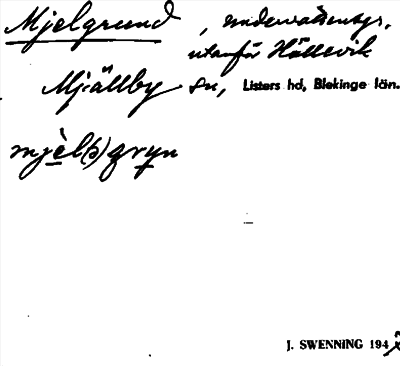 Mjelgrund, undervattensgr.
utanför Hällevik
Mjällby sn, Listers hd, Blekinge län.
mjèl(s)gryn
J. SWENNING 194